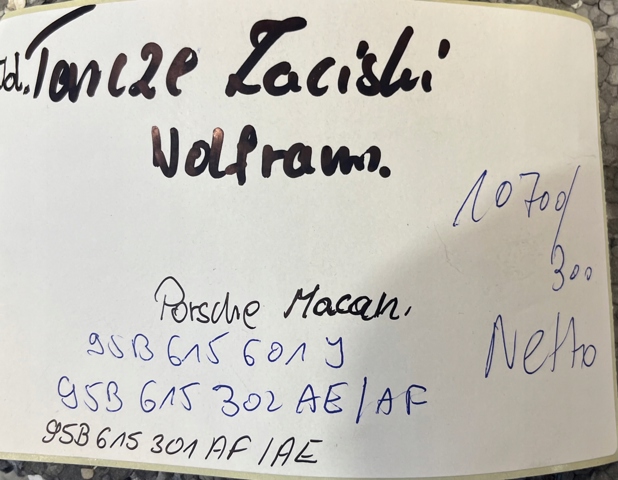 Tarcze Zaciski
Wolfram.
10700/
300
Netto
Porsche Macan.
95B 615 601 J
95B 615 302 AE/AF
95B 615 301 AF/AE